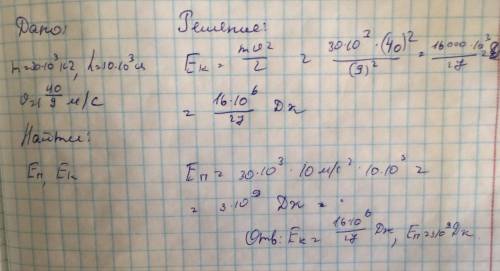 Дано:
m=30·10³ кг, h=10·10³ м
υ= 40/9 м/с
Найти:
Eп, Eк
Решение:
Eк = mυ²/2 = 30·10³·(40)²/(9)² = 16000·10³/27
= 16·10⁶/27 Дж
Eп = 30·10³·10 м/с²·10·10³ =
= 3·10⁹ Дж =
Отв: Eк = 16·10⁶/27 Дж, Eп=3·10⁹ Дж.